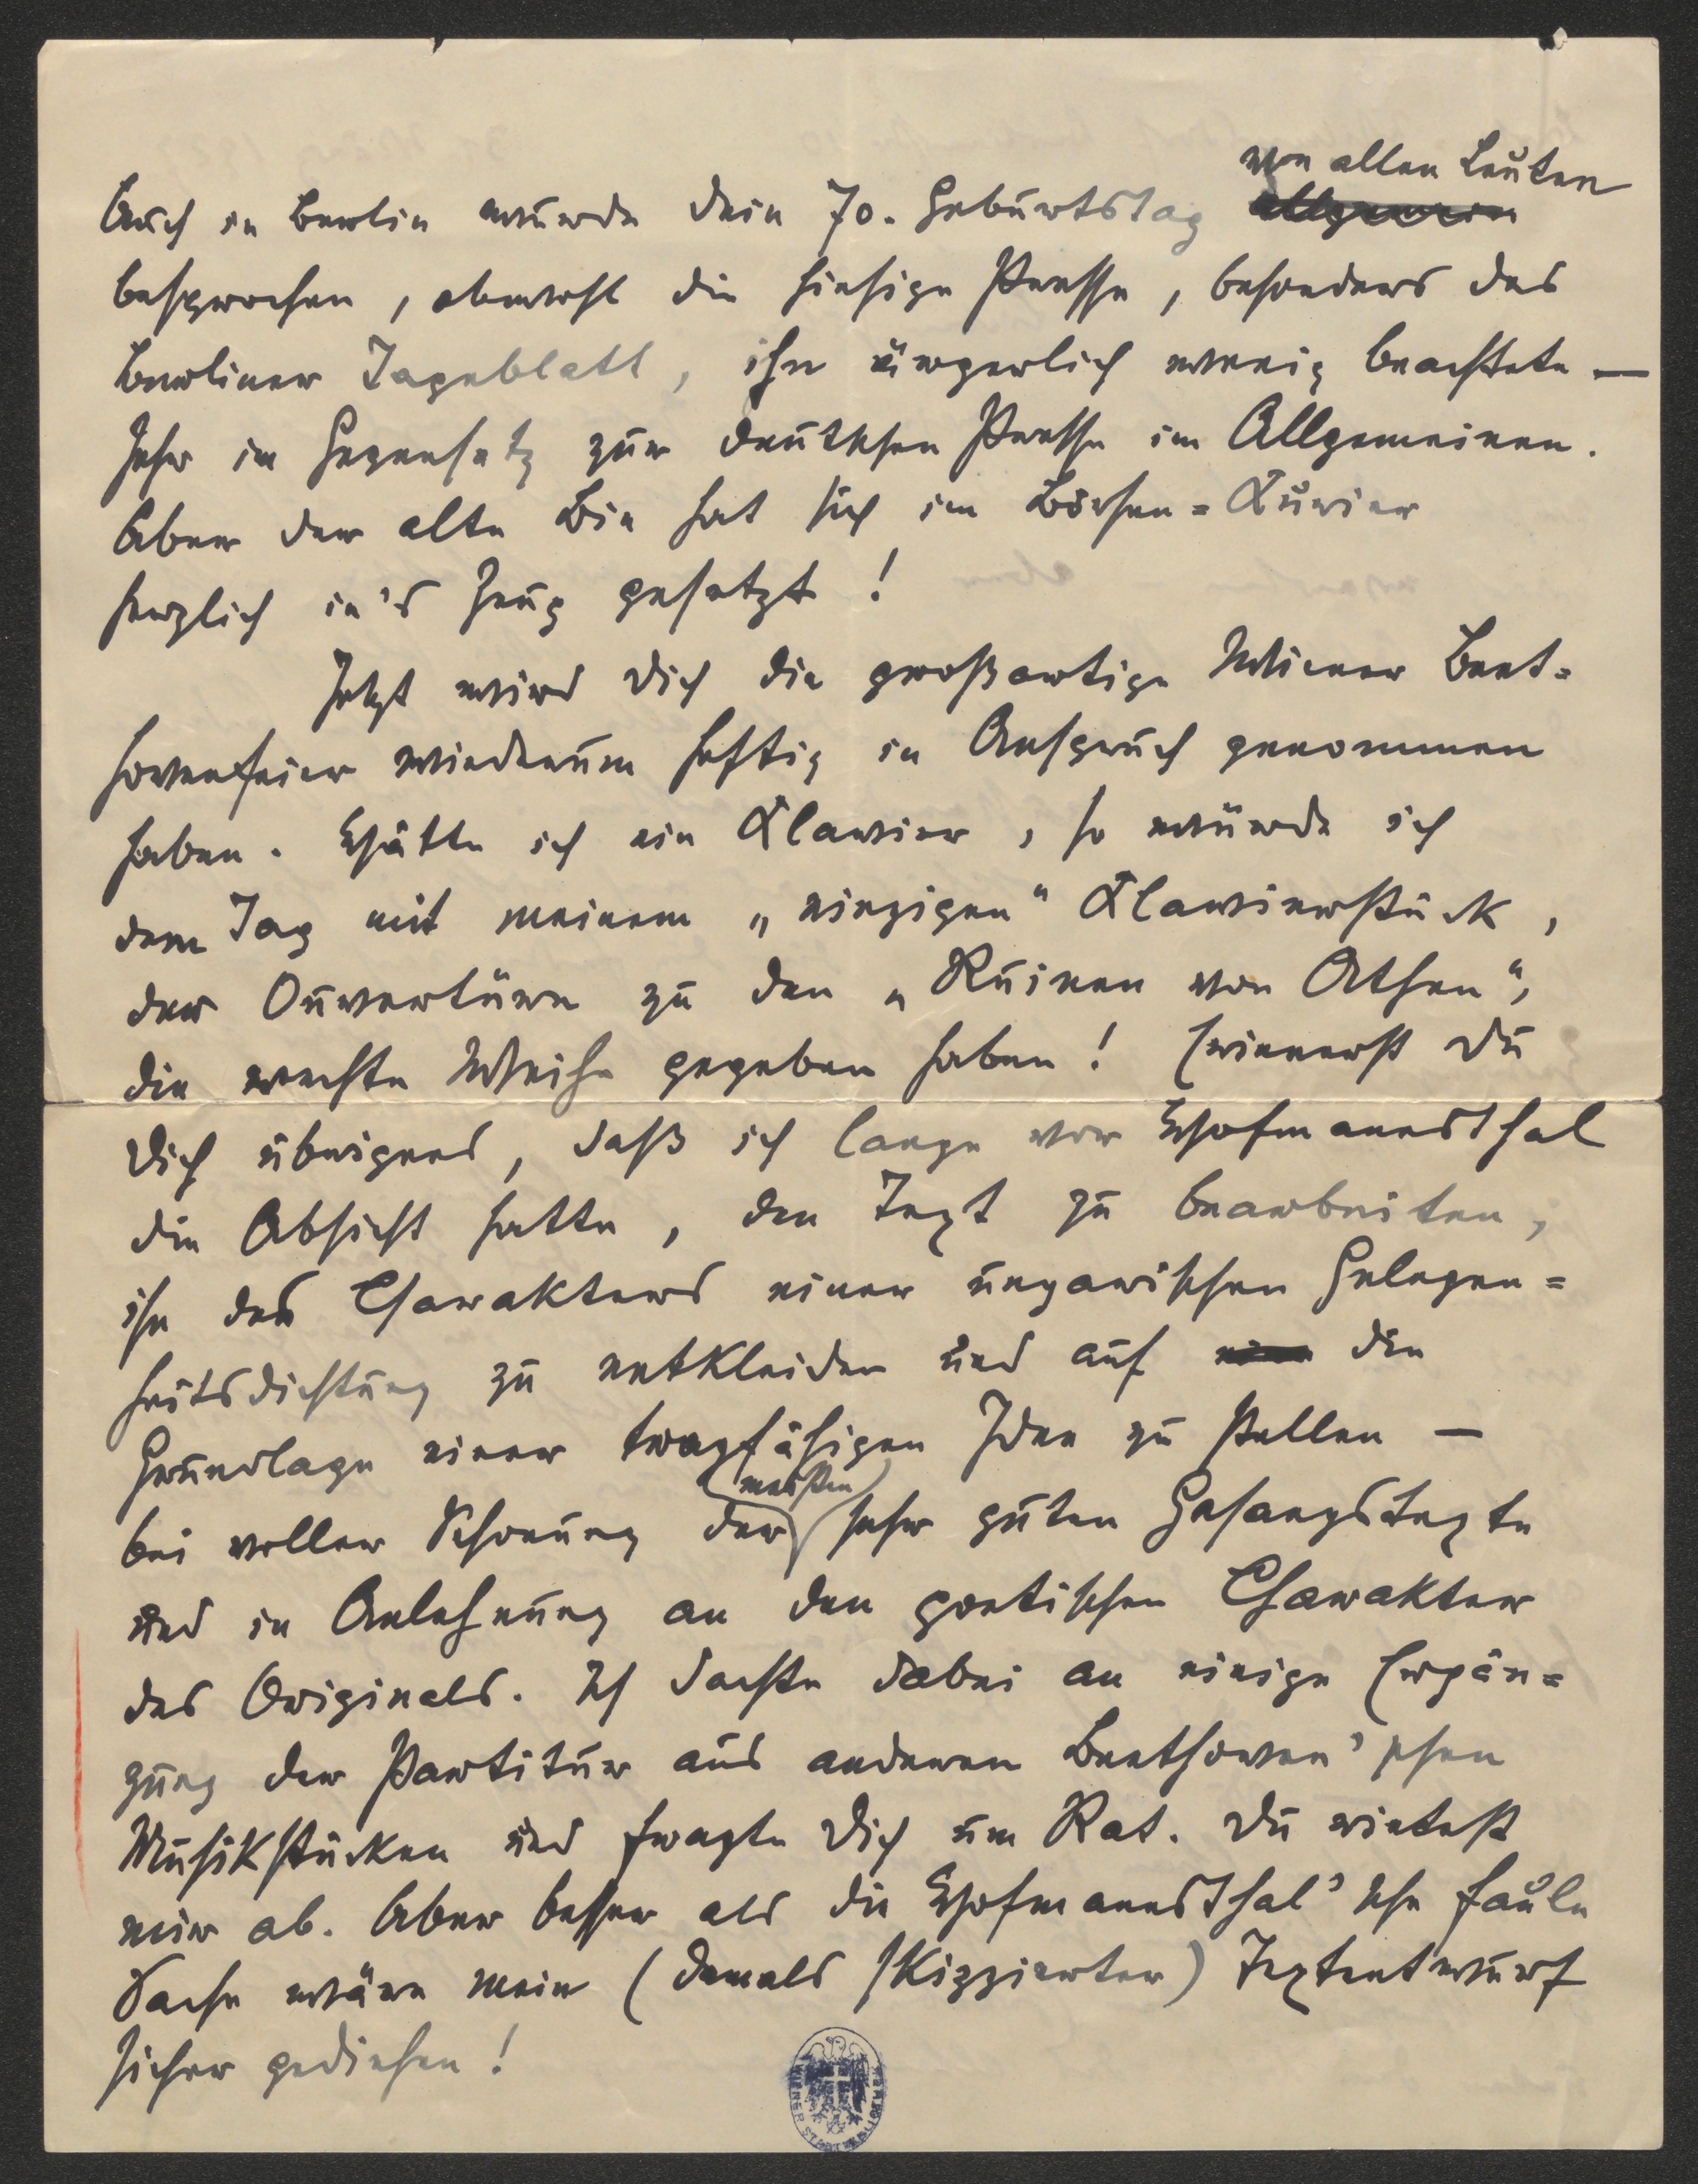 von allen Leuten
Auch in Berlin wurde dein 70. Geburtstag allgemein
besprochen, obwohl die hiesige Presse, besonders das
Berliner Tageblatt, ihn ärgerlich wenig beachtete —
sehr im Gegensatz zur deutschen Presse im Allgemeinen.
Aber der alte Bie hat sich im Börsen=Kurier
herzlich in's Zeug gesetzt!
Jetzt wird Dich die großartige Wiener Beet=
hovenfeier wiederum heftig in Anspruch genommen
haben. Hätte ich ein Klavier, so würde ich
dem Tag mit meinem „einzigen" Klavierstück,
der Ouvertüre zu den „Ruinen von Athen",
die rechte Weihe gegeben haben! Erinnerst Du
Dich übrigens, daß ich lange vor Hofmannsthal
die Absicht hatte, den Text zu bearbeiten,
ihn des Charakters einer ungarischen Gelegen=
heitsdichtung zu entkleiden und auf die
Grundlage einer tragfähigen Idee zu stellen —
bei voller Schonung der (meisten) sehr guten Gesangstexte
und in Anlehnung an den poetischen Charakter
des Originals. Ich dachte dabei an einige Ergän=
zung der Partitur aus anderen Beethoven'schen
Musikstücken und fragte Dich um Rat. Du rietest
mir ab. Aber besser als die Hofmannsthal'sche faule
Sache wäre mein (damals skizzierter) Textentwurf
sicher gediehen!